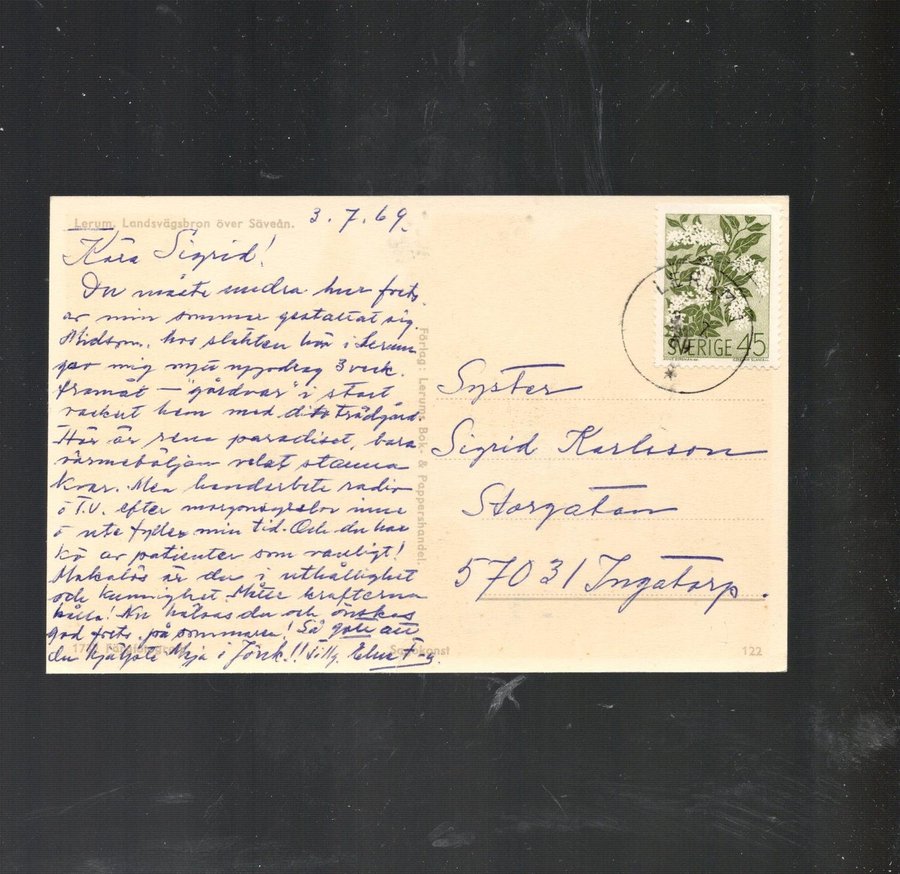 Lerum. Landsvägsbron över Säveån.
3.7.69.
Kära Sigrid!
Du måste undra hur forts.
av min sommar gestaltat sig.
Midsom. hos släkten här i Lerum
gav mig nytt uppdrag 3 veck.
framåt — "gårdvar" i stort
vackert hem med dito trädgård.
Här är rena paradiset, bara
värmeböljan velat stanna
kvar. Men handarbete radio
o T.V. efter morgonsysslor inne
o ute fyller min tid. Och du har
kö av patienter som vanligt!
Makalös är du i uthållighet
och kunnighet. Måtte krafterna
hålla! Nu hälsas du och önskas
god forts. på sommaren! Så gott att
du hjälpte Maja i Jönk.!! Tillg. Elna F-g.
Förlag: Lerums Bok- & Pappershandel.
SVERIGE 45
LERUM
Syster
Sigrid Karlsson
Storgatan
57031 Ingatorp.
122